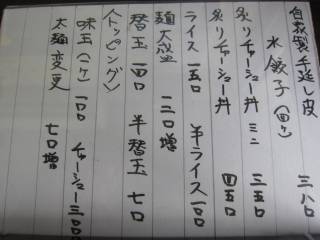 自家製手延し皮
水餃子(四ケ) 三八〇
炙りチャーシュー丼 ミニ 三五〇
炙リチャーシュー丼 四五〇
ライス 一五〇 半ライス 一〇〇
麺大盛 一二〇増
替玉 一四〇 半替玉 七〇
〈トッピング〉
味玉(一ケ) 一〇〇 チャーシュー 三〇〇
太麺変更 七〇増